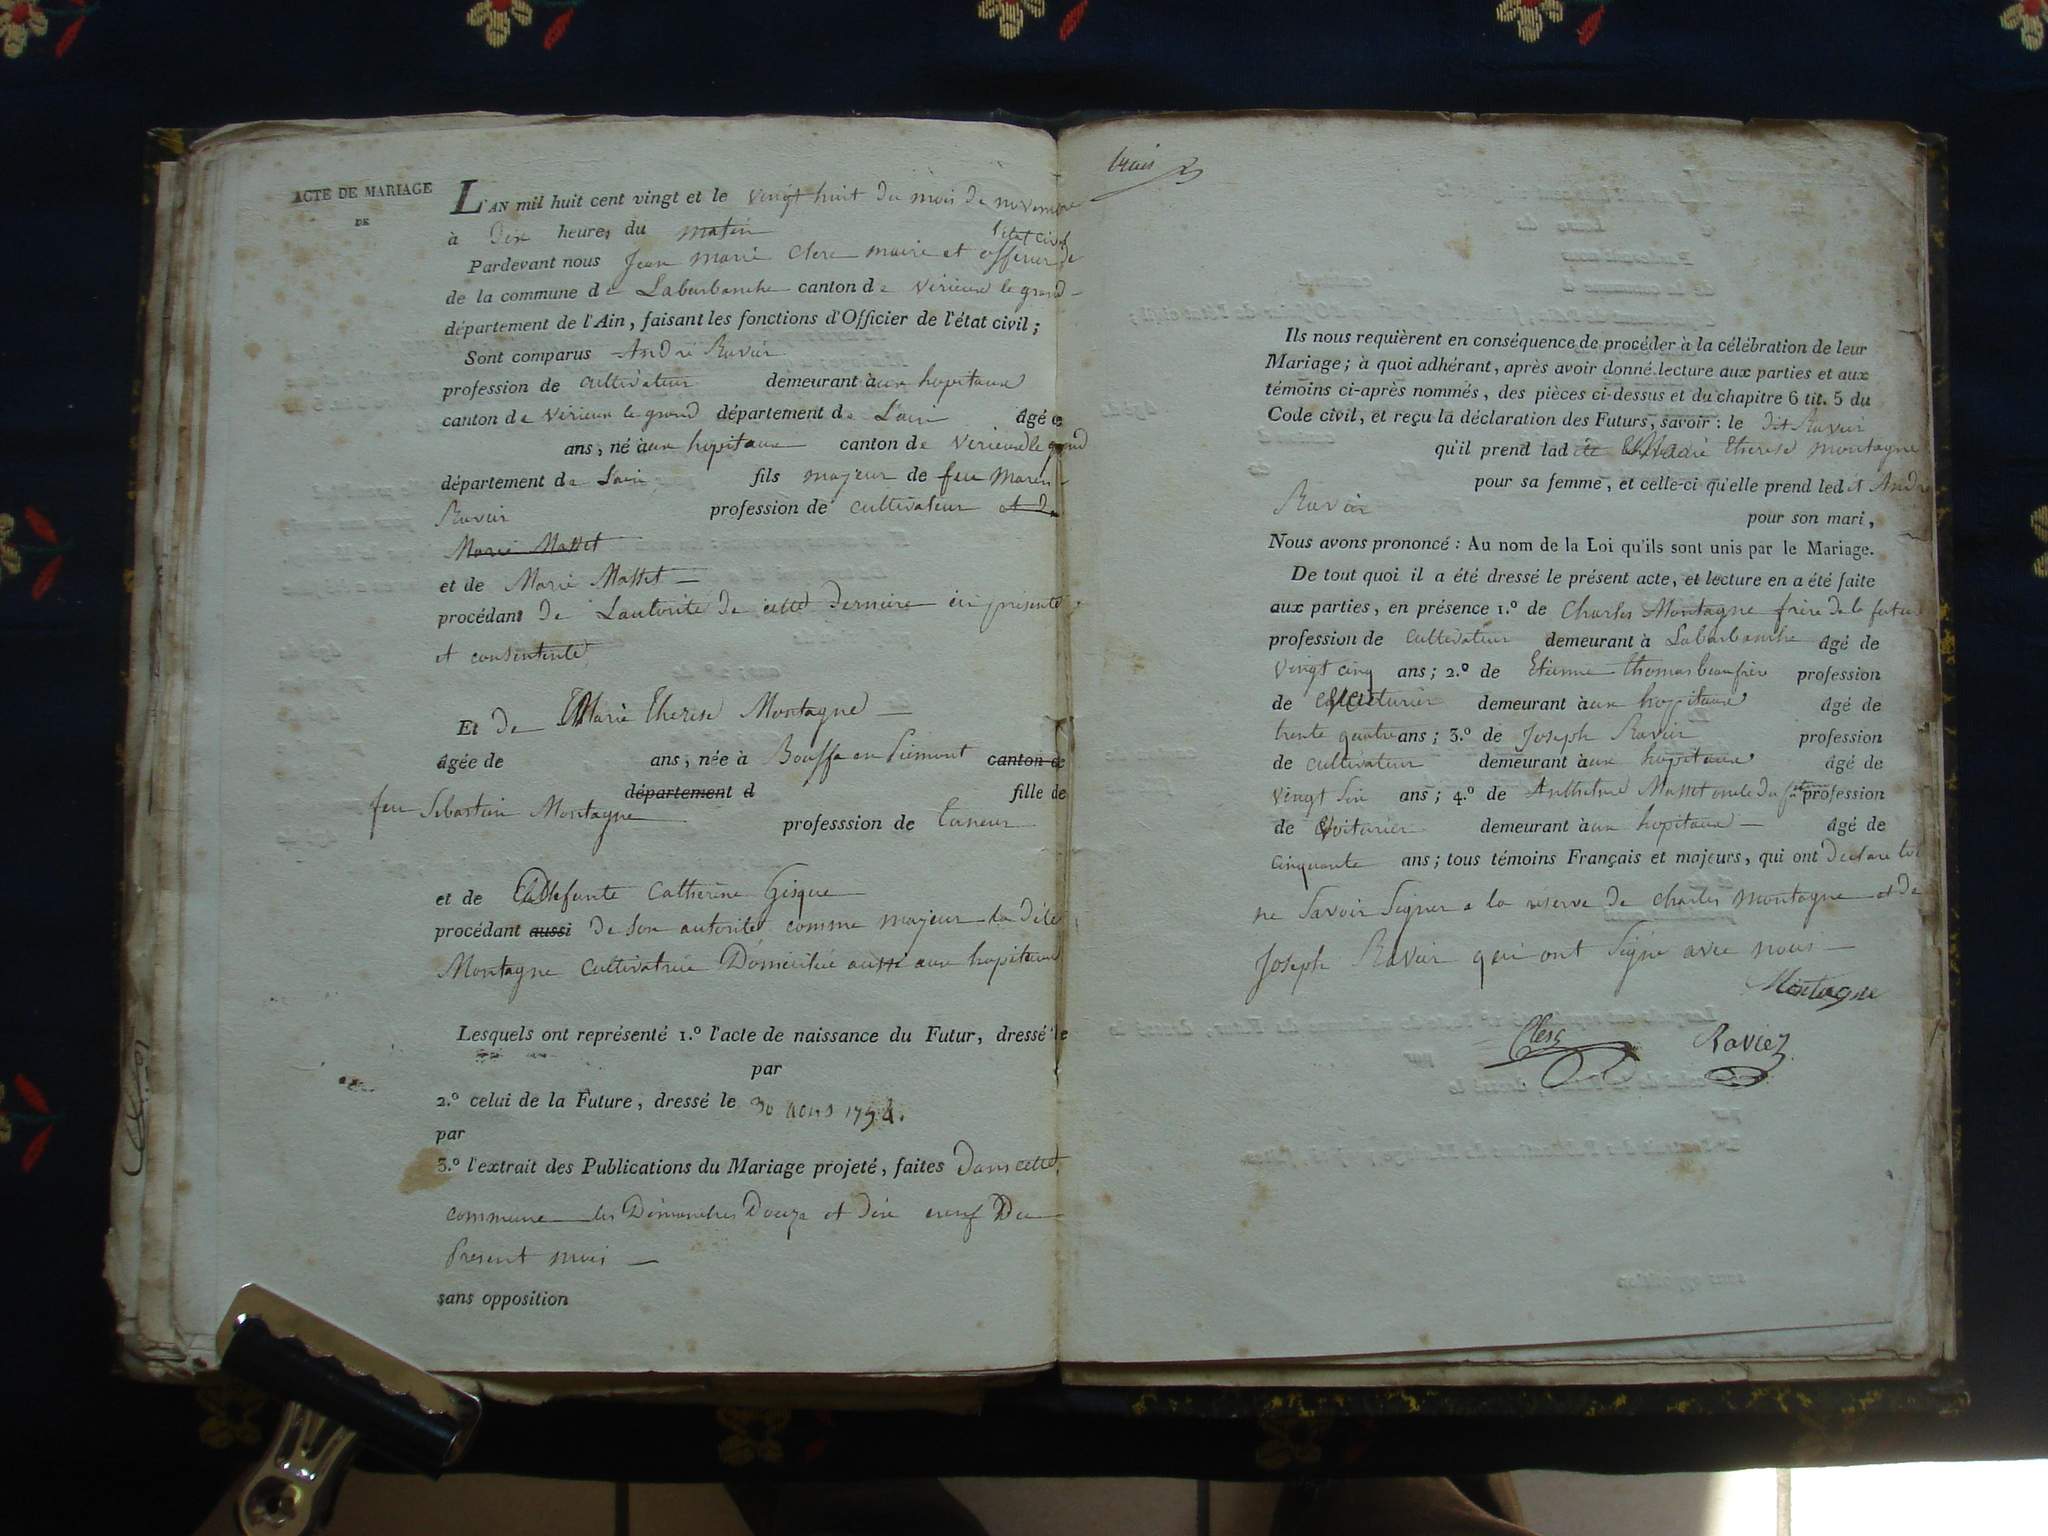 ACTE DE MARIAGE
DE
L'AN mil huit cent vingt et le vingt huit du mois de novembre
à Dix heures du matin
l'état civil
Pardevant nous Jean marie Clerc maire et officier de
de la commune de Laburbanche canton de virieux le grand
département de l'Ain, faisant les fonctions d'Officier de l'état civil ;
Sont comparus André Ravier
profession de cultivateur demeurant aux hopitaux
canton de virieux le grand département de L'ain âgé de
ans, né aux hopitaux canton de virieux le grand
département de Lain fils majeur de feu
Ravier profession de cultivateur et de
Marie Masset
et de Marie Masset
procédant de Lautorité de cette derniere ici présente
et consentente
Et de Marie therese Montagne
âgée de ans, née à en Piémont canton de
département d fille de
feu Sebastien Montagne professsion de taneur
et de defunte Catherine Gisque
procédant aussi de son autorité comme majeur la dite
Montagne cultivatrice Domiciliée aussi aux hopitaux
Lesquels ont représenté 1.º l'acte de naissance du Futur, dressé le
par
2.º celui de la Future, dressé le 30
par
3.º l'extrait des Publications du Mariage projeté, faites Dans cette
commune les Dimanches Douze et dix neuf Du
Present mois
sans opposition
trois
Ils nous requièrent en conséquence de procéder à la célébration de leur
Mariage; à quoi adhérant, après avoir donné lecture aux parties et aux
témoins ci-après nommés, des pièces ci-dessus et du chapitre 6 tit. 5 du
Code civil, et reçu la déclaration des Futurs, savoir : le dit Ravier
qu'il prend lad ite Marie therese montagne
pour sa femme, et celle-ci qu'elle prend led it André
Ravier pour son mari,
Nous avons prononcé : Au nom de la Loi qu'ils sont unis par le Mariage.
De tout quoi il a été dressé le présent acte, et lecture en a été faite
aux parties, en présence 1.º de Charles Montagne frère de la future
profession de cultivateur demeurant à Laburbanche âgé de
vingt cinq ans; 2.º de Etienne thomas beaufrère profession
de voiturier demeurant aux hopitaux âgé de
trente quatre ans; 3.º de Joseph Ravier profession
de cultivateur demeurant aux hopitaux âgé de
vingt six ans; 4.º de Anthelme Masset oncle du futur profession
de voiturier demeurant aux hopitaux âgé de
cinquante ans; tous témoins Français et majeurs, qui ont declaré
ne Savoir Signer a la reserve de charles montagne et de
Joseph Ravier qui ont Signé avec nous
Montagne
Clerc Ravier